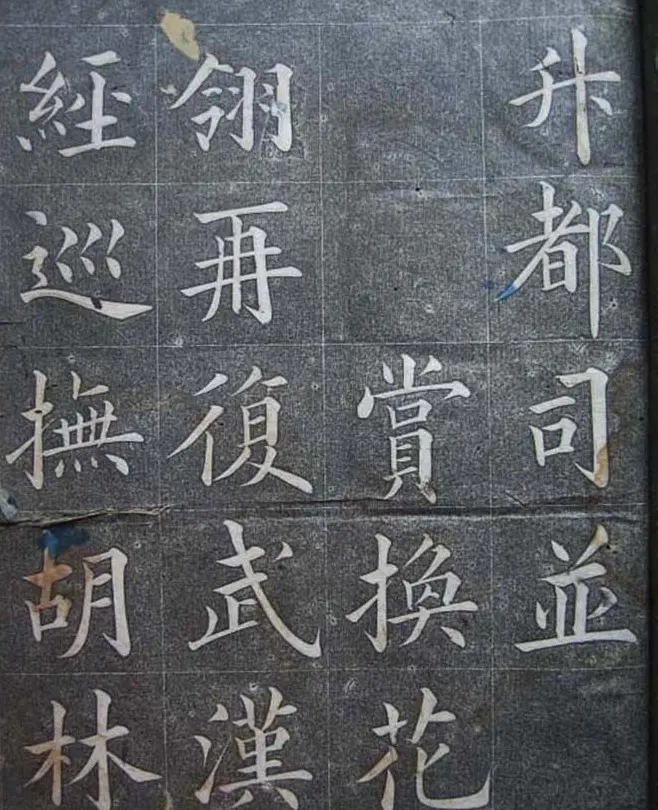 升都司並
賞換花
翎再復武漢
經巡撫胡林